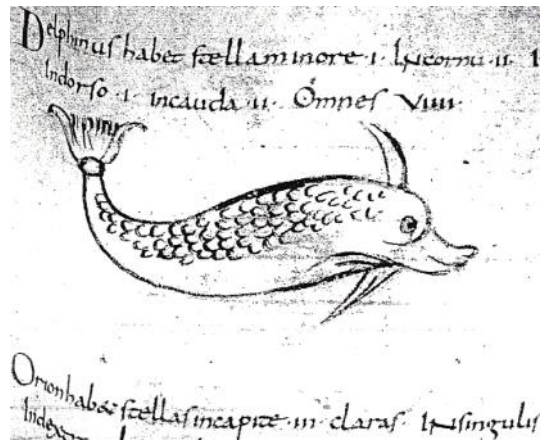 Delphinus habet stellam in ore · i · In cornu · ii ·
In dorso · i · In cauda · ii · Omnes viiii ·
Orion habet stellas in capite · iii · claras · In singulis